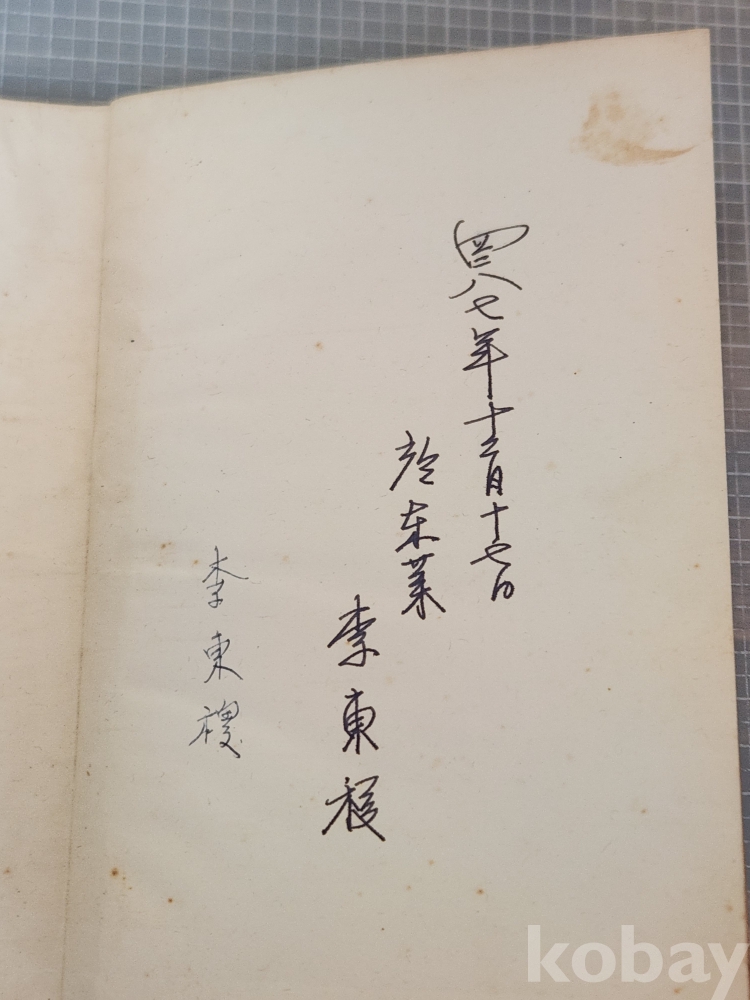 四二八七年十二月十七日
於东萊
李東稷
李東稷
kobay